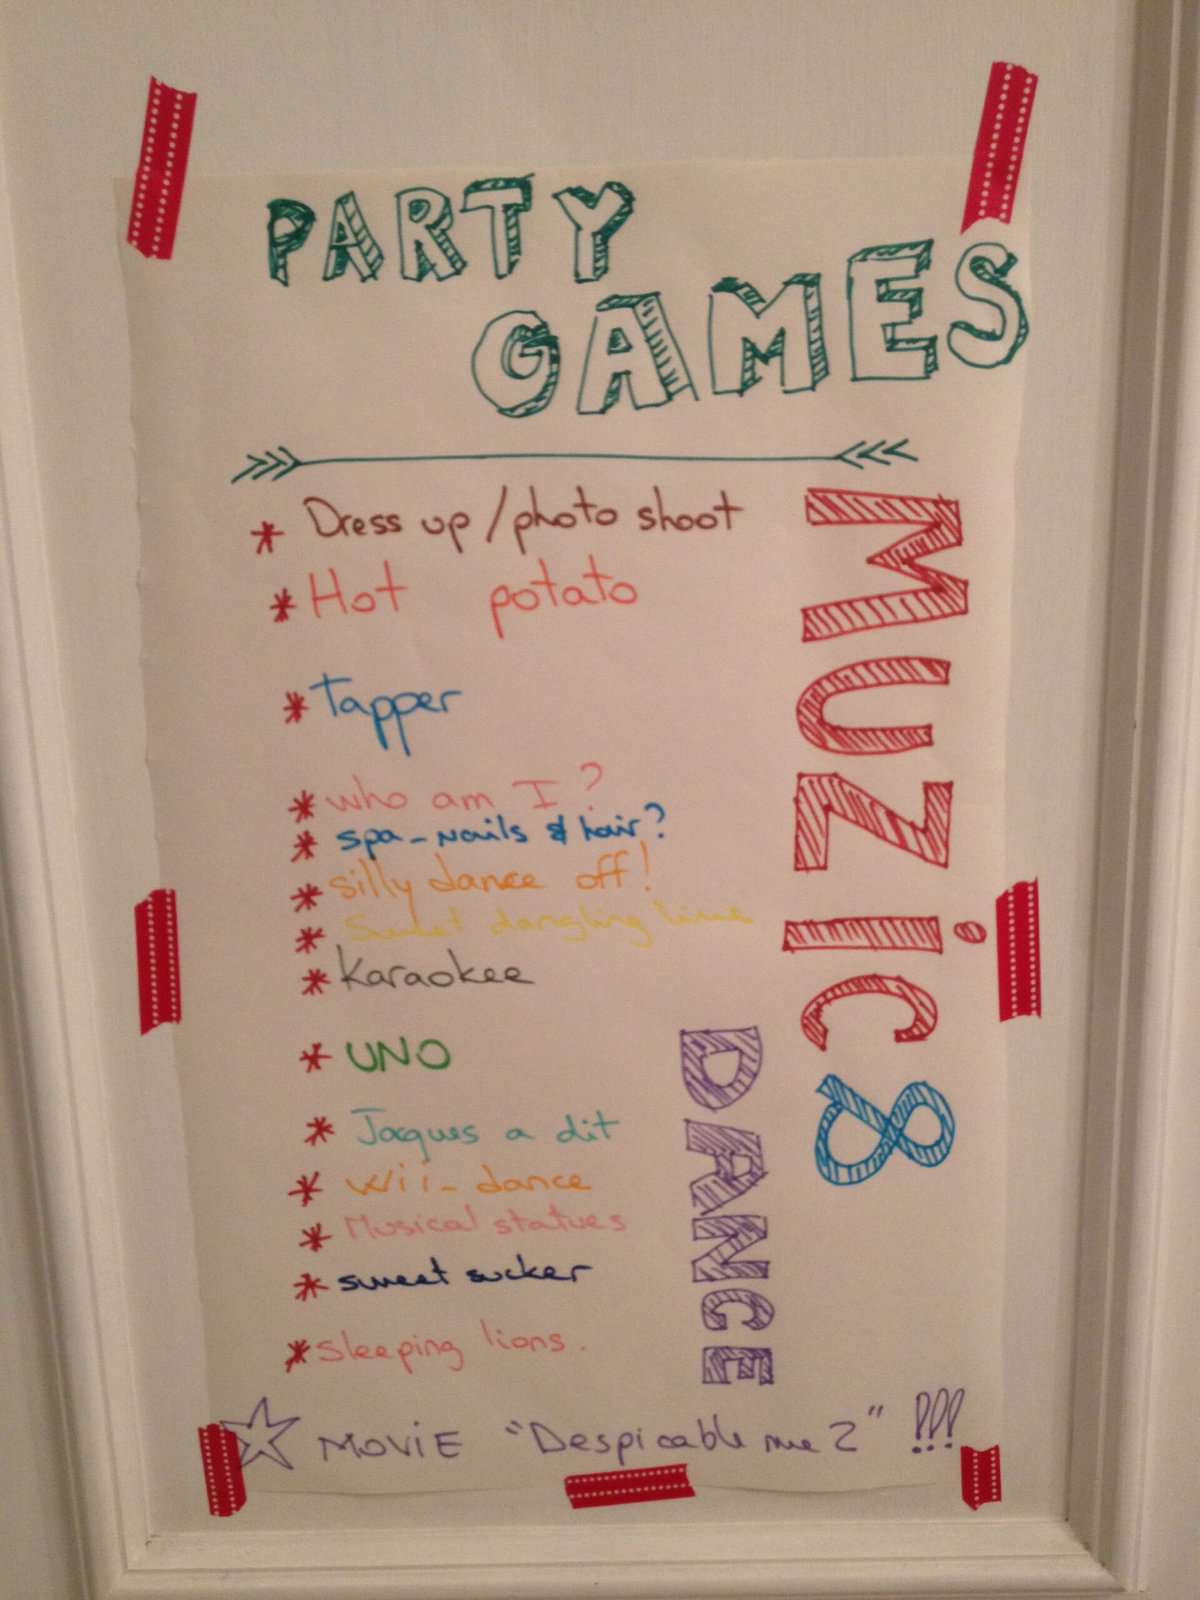 PARTY
GAMES
* Dress up / photo shoot
* Hot potato
* Tapper
* who am I?
* spa - nails & hair?
* silly dance off!
* Sweet dangling line
* Karaokee
* UNO
* Jaques a dit
* Wii - dance
* Musical statues
* sweet sucker
* sleeping lions.
MUZiC &
DANCE
MOViE "Despicable me 2" !!!